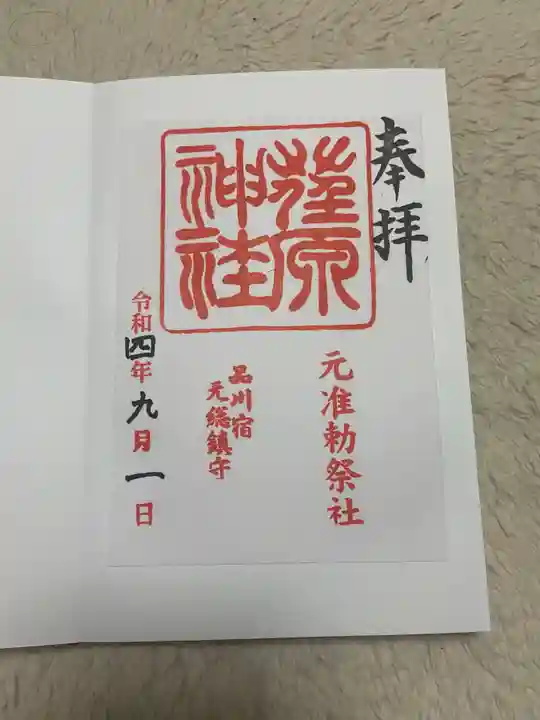 奉拝
元准勅祭社
荏原
神社
品川宿
元総鎮守
令和四年九月一日